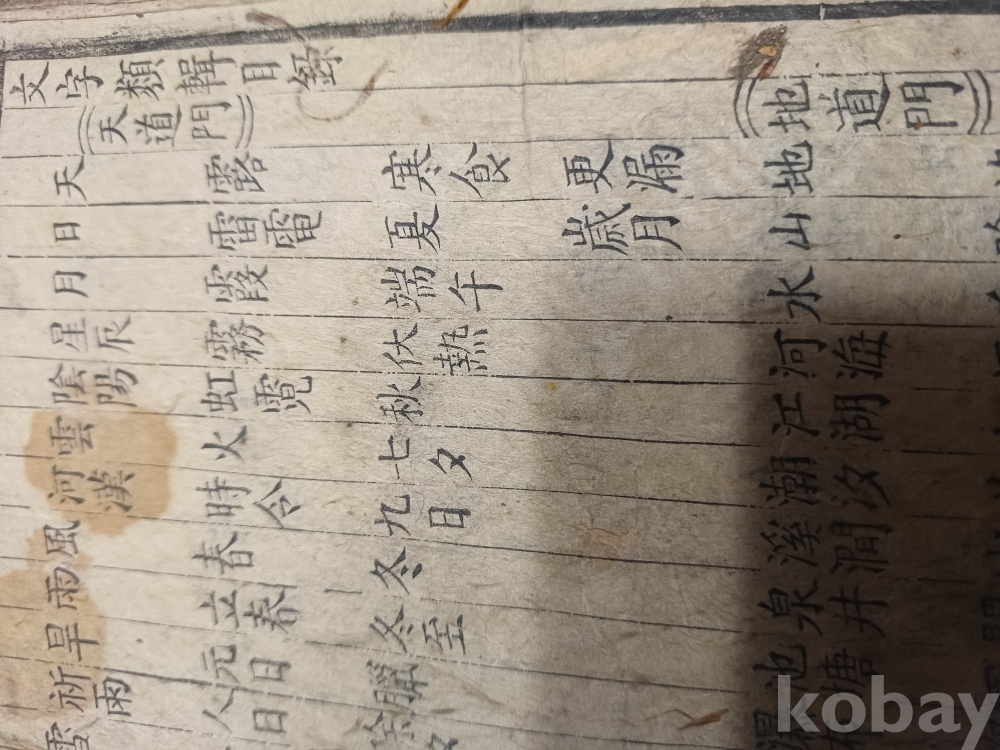 文字類輯目錄
天道門 地道門
天 露 寒食 更漏 地
日 雷電 夏 歲月 山
月 霞 端午 水
星辰 霧 伏熱 河海
陰陽 虹霓 秋 江湖
雲 火 七夕 潮汐
河漢 時令 九日 溪澗
風 春 冬 泉井
雨 立春 冬至 池塘
旱 元日 臘
祈雨 人日
雪
kobay